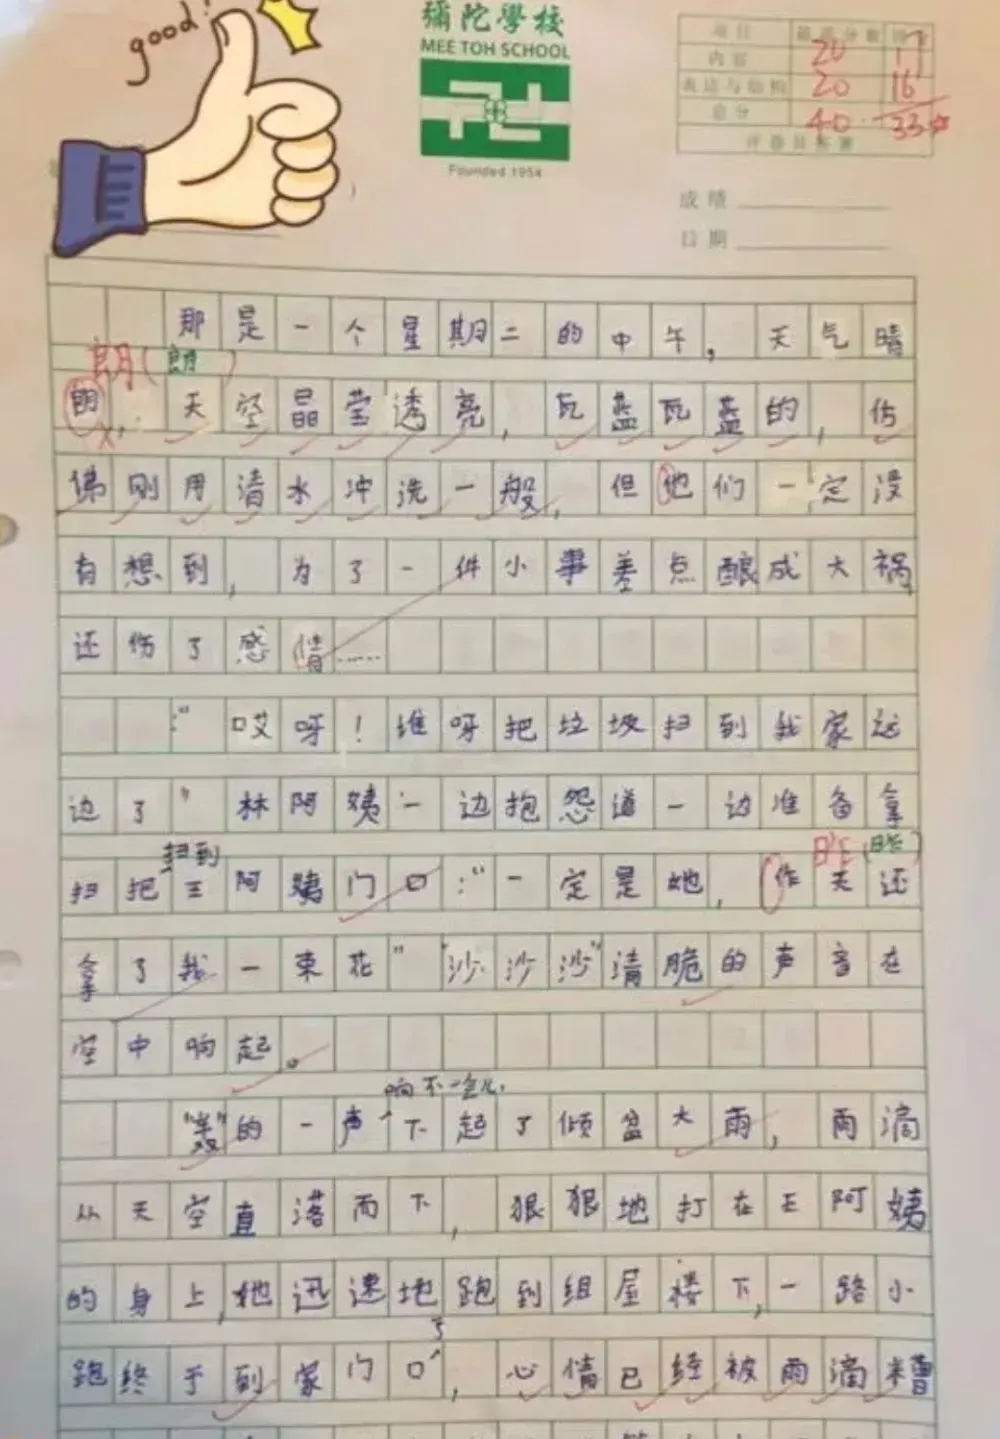 good!
彌陀學校
MEE TOH SCHOOL
Founded 1954
项目 最高分数
内容 20 17
表达与结构 20 16
总分 40 33
成绩
日期
那是一个星期二的中午，天气晴
朗(朗)
朗，天空晶莹透亮，瓦蓝瓦蓝的，仿
佛刚用清水冲洗一般，但他们一定没
有想到，为了一件小事差点酿成大祸，
还伤了感情……
："哎呀！谁呀把垃圾扫到我家这
边了"林阿姨一边抱怨道一边准备拿
扫到 昨(昨)
扫把王阿姨门口："一定是她，作天还
拿了我一束花""沙沙沙"清脆的声音在
空中响起。
响不一会儿，
"轰"的一声下起了倾盆大雨，雨滴
从天空直落而下，狠狠地打在王阿姨
的身上，她迅速地跑到组屋楼下，一路小
了
跑终于到家门口，心情已经被雨滴糟